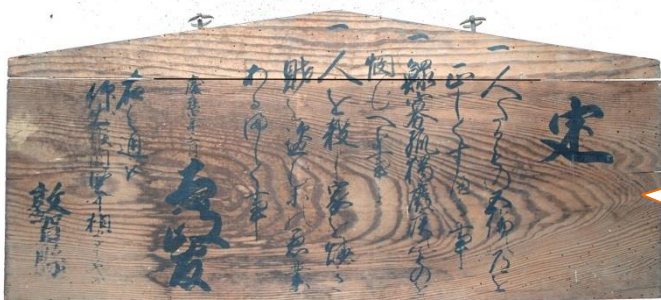 定
一 人たるもの五倫之道を
正しくすへき事
一 鰥寡孤獨癈疾のものを
憫むへき事
一 人を殺し家を焼き
財を盗む等の悪業
あるましく事
慶應四年三月 太政官
右之通
敦賀縣